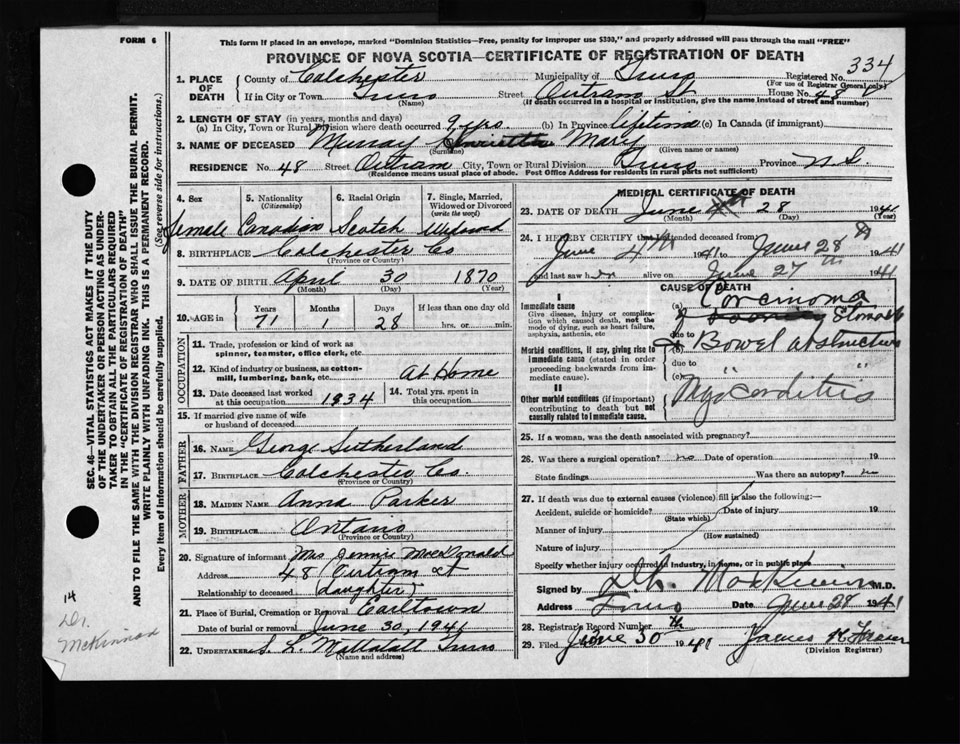 FORM 6
This form if placed in an envelope, marked "Dominion Statistics—Free, penalty for improper use $300," and properly addressed will pass through the mail "FREE"
PROVINCE OF NOVA SCOTIA—CERTIFICATE OF REGISTRATION OF DEATH
334
1. PLACE OF DEATH
County of Colchester Municipality of Truro Registered No.
(For use of Registrar General only)
If in City or Town Truro Street Outram St House No. 48
(Name) (If death occurred in a hospital or institution, give the name instead of street and number)
2. LENGTH OF STAY (in years, months and days)
(a) In City, Town or Rural Division where death occurred 9 yrs. (b) In Province lifetime (c) In Canada (if immigrant)
3. NAME OF DECEASED Murray Henrietta Mary
(Surname) (Given name or names)
RESIDENCE No. 48 Street Outram City, Town or Rural Division Truro Province N.S.
(Residence means usual place of abode. Post Office Address for residents in rural parts not sufficient)
4. Sex 5. Nationality (Citizenship) 6. Racial Origin 7. Single, Married, Widowed or Divorced (write the word)
Female Canadian Scotch Widowed
8. BIRTHPLACE Colchester Co
(Province or Country)
9. DATE OF BIRTH April 30 1870
(Month) (Day) (Year)
10. AGE in Years Months Days If less than one day old
71 1 28 hrs. or min.
OCCUPATION
11. Trade, profession or kind of work as spinner, teamster, office clerk, etc.
12. Kind of industry or business, as cotton-mill, lumbering, bank, etc. At Home
13. Date deceased last worked at this occupation 1934 14. Total yrs. spent in this occupation
15. If married give name of wife or husband of deceased
FATHER
16. NAME George Sutherland
17. BIRTHPLACE Colchester Co.
(Province or Country)
MOTHER
18. MAIDEN NAME Anna Parker
19. BIRTHPLACE Ontario
(Province or Country)
20. Signature of informant Mrs Jennie MacDonald
Address 48 Outram St
Relationship to deceased (daughter)
21. Place of Burial, Cremation or Removal Earltown
Date of burial or removal June 30, 1941
22. UNDERTAKER S. L. Mattatall Truro
(Name and address)
MEDICAL CERTIFICATE OF DEATH
23. DATE OF DEATH June 28 1941
(Month) (Day) (Year)
24. I HEREBY CERTIFY that I attended deceased from
June 4th 1941 to June 28th 1941
and last saw her alive on June 27th 1941
CAUSE OF DEATH
I
Immediate cause
Give disease, injury or complication which caused death, not the mode of dying, such as heart failure, asphyxia, asthenia, etc
(a) Carcinoma
of Stomach
due to
Morbid conditions, if any, giving rise to immediate cause (stated in order proceeding backwards from immediate cause).
(b) Bowel obstruction
due to
(c) " "
II
Other morbid conditions (if important) contributing to death but not causally related to immediate cause.
Myocarditis
25. If a woman, was the death associated with pregnancy?
26. Was there a surgical operation? no Date of operation 19
State findings Was there an autopsy? no
27. If death was due to external causes (violence) fill in also the following:—
Accident, suicide or homicide? Date of injury 19
(State which)
Manner of injury
(How sustained)
Nature of injury
Specify whether injury occurred in industry, in home, or in public place
Signed by M.D.
Address Truro Date June 28 1941
28. Registrar's Record Number
29. Filed June 30th 1941 James K. Fraser
(Division Registrar)
SEC. 46—VITAL STATISTICS ACT MAKES IT THE DUTY
OF THE UNDERTAKER OR PERSON ACTING AS UNDERTAKER TO OBTAIN ALL THE PARTICULARS REQUIRED
IN THE "CERTIFICATE OF REGISTRATION OF DEATH"
AND TO FILE THE SAME WITH THE DIVISION REGISTRAR WHO SHALL ISSUE THE BURIAL PERMIT.
WRITE PLAINLY WITH UNFADING INK. THIS IS A PERMANENT RECORD.
Every item of information should be carefully supplied. (See reverse side for instructions.)
14
Dr.
McKinnon